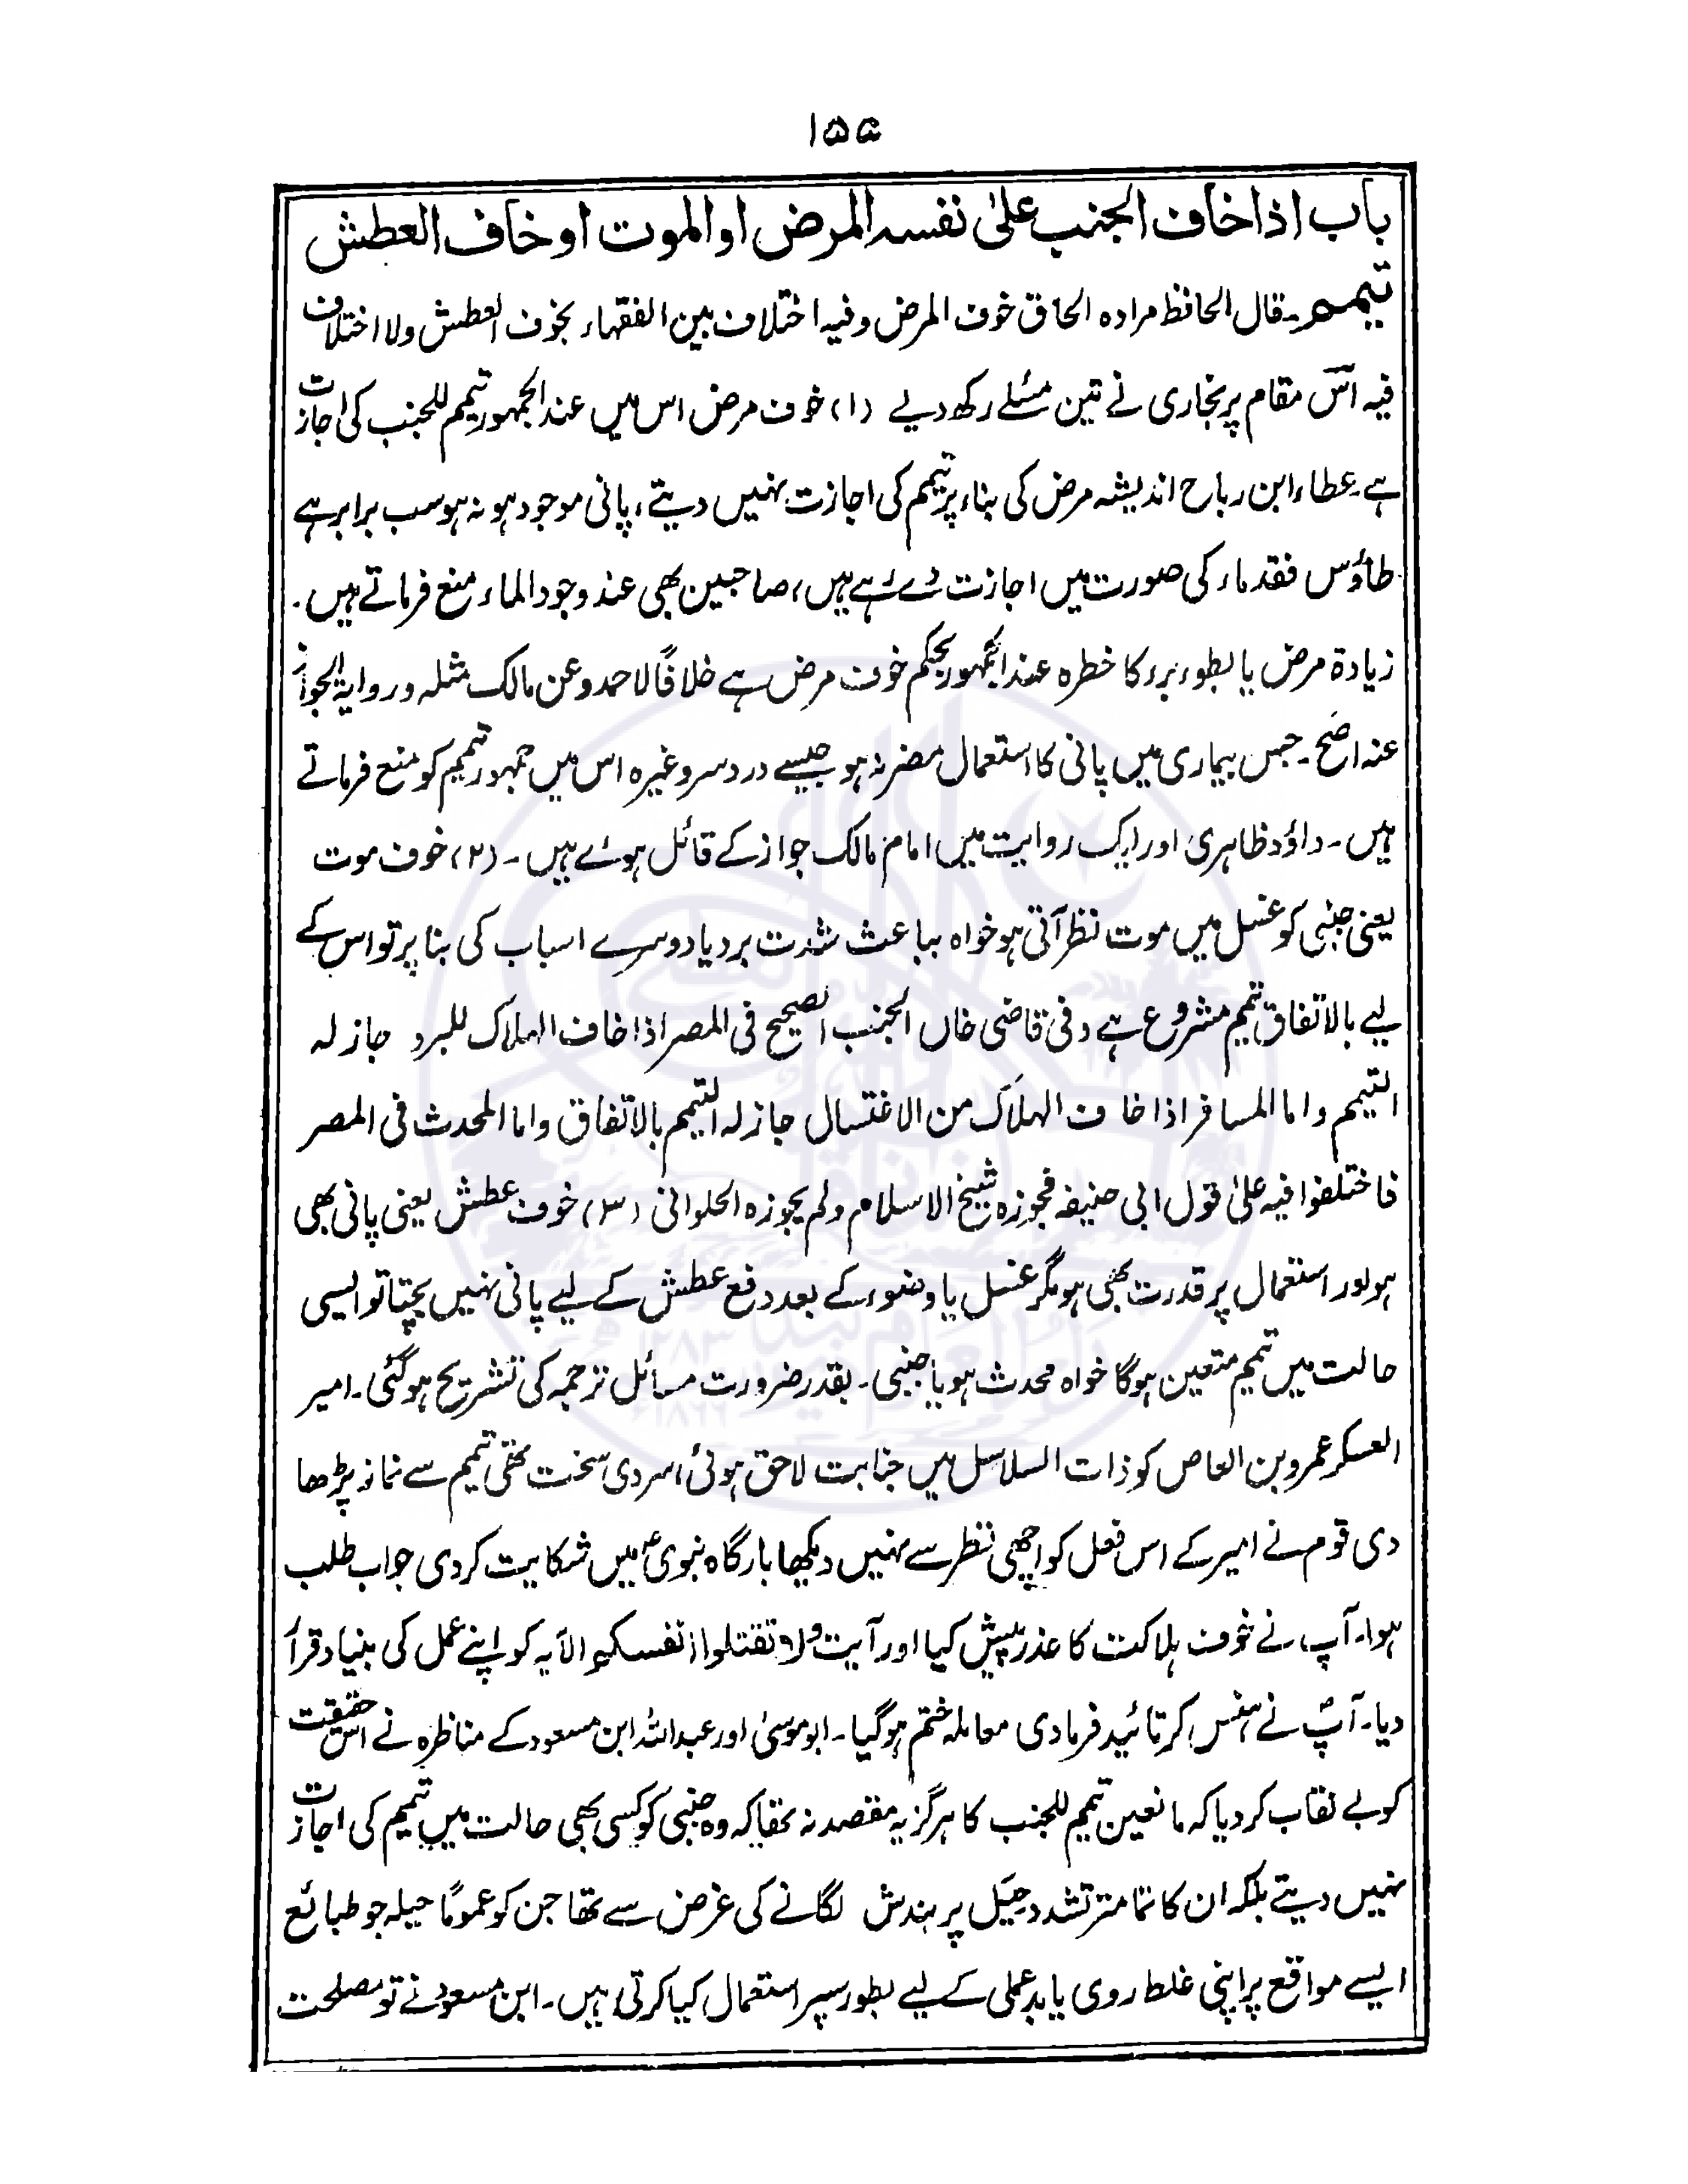 ۱۵۵
باب اذا خاف الجنب علیٰ نفسہ المرض او الموت او خاف العطش
تیمم۔ قال الحافظ مرادہ الحاق خوف المرض وفیہ اختلاف بین الفقہاء بخوف العطش ولا اختلاف
فیہ اس مقام پر بخاری نے تین مسئلے رکھ دیے (۱) خوف مرض اس میں عند الجمہور تیمم للجنب کی اجازت
ہے۔ عطاء ابن رباح اندیشہ مرض کی بناء پر تیمم کی اجازت نہیں دیتے، پانی موجود ہو نہ ہو سب برابر ہے
طاؤس فقد ماء کی صورت میں اجازت دے رہے ہیں، صاحبین بھی عند وجود الماء منع فرماتے ہیں۔
زیادۃ مرض یا بطوء برء کا خطرہ عند الجمہور بحکم خوف مرض ہے خلافاً لاحمد وعن مالک مثلہ وروایۃ الجواز
عنہ اصح۔ جس بیماری میں پانی کا استعمال مضر نہ ہو جیسے درد سر وغیرہ اس میں جمہور تیمم کو منع فرماتے
ہیں۔ داؤد ظاہری اور ایک روایت میں امام مالک جواز کے قائل ہوئے ہیں۔ (۲) خوف موت
یعنی جنبی کو غسل میں موت نظر آتی ہو خواہ بباعث شدت برد یا دوسرے اسباب کی بنا پر تو اس کے
لیے بالاتفاق تیمم مشروع ہے وفی قاضی خاں الجنب الصحیح فی المصر اذا خاف الہلاک للبرد جاز لہ
التیمم واما المسافر اذا خاف الہلاک من الاغتسال جاز لہ التیمم بالاتفاق واما المحدث فی المصر
فاختلفوا فیہ علیٰ قول ابی حنیفہ فجوزہ شیخ الاسلام ولم یجوزہ الحلوانی (۳) خوف عطش یعنی پانی بھی
ہو اور استعمال پر قدرت بھی ہو مگر غسل یا وضوء کے بعد دفع عطش کے لیے پانی نہیں بچتا تو ایسی
حالت میں تیمم متعین ہوگا خواہ محدث ہو یا جنبی۔ بقدر ضرورت مسائل ترجمہ کی تشریح ہوگئی۔ امیر
العسکر عمرو بن العاص کو ذات السلاسل میں جنابت لاحق ہوئی، سردی سخت تھی تیمم سے نماز پڑھا
دی قوم نے امیر کے اس فعل کو اچھی نظر سے نہیں دیکھا بارگاہ نبویؐ میں شکایت کردی جواب طلب
ہوا۔ آپ نے خوف ہلاکت کا عذر پیش کیا اور آیت ولا تقتلوا انفسکم الآیہ کو اپنے عمل کی بنیاد قرار
دیا۔ آپؐ نے ہنس کر تائید فرمادی معاملہ ختم ہوگیا۔ ابو موسیٰ اور عبداللہ ابن مسعود کے مناظرہ نے اس حقیقت
کو بے نقاب کردیا کہ مانعین تیمم للجنب کا ہرگز یہ مقصد نہ تھا کہ وہ جنبی کو کسی بھی حالت میں تیمم کی اجازت
نہیں دیتے بلکہ ان کا تمامتر تشدد حِیَل پر بندش لگانے کی غرض سے تھا جن کو عموماً حیلہ جو طبائع
ایسے مواقع پر اپنی غلط روی یا بدعملی کے لیے بطور سپر استعمال کیا کرتی ہیں۔ ابن مسعودؓ نے تو مصلحت